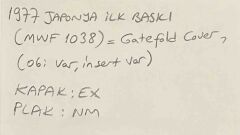 1977 JAPONYA İLK BASKI
(MWF 1038) = Gatefold Cover,
(obi var, insert var)
KAPAK : EX
PLAK : NM